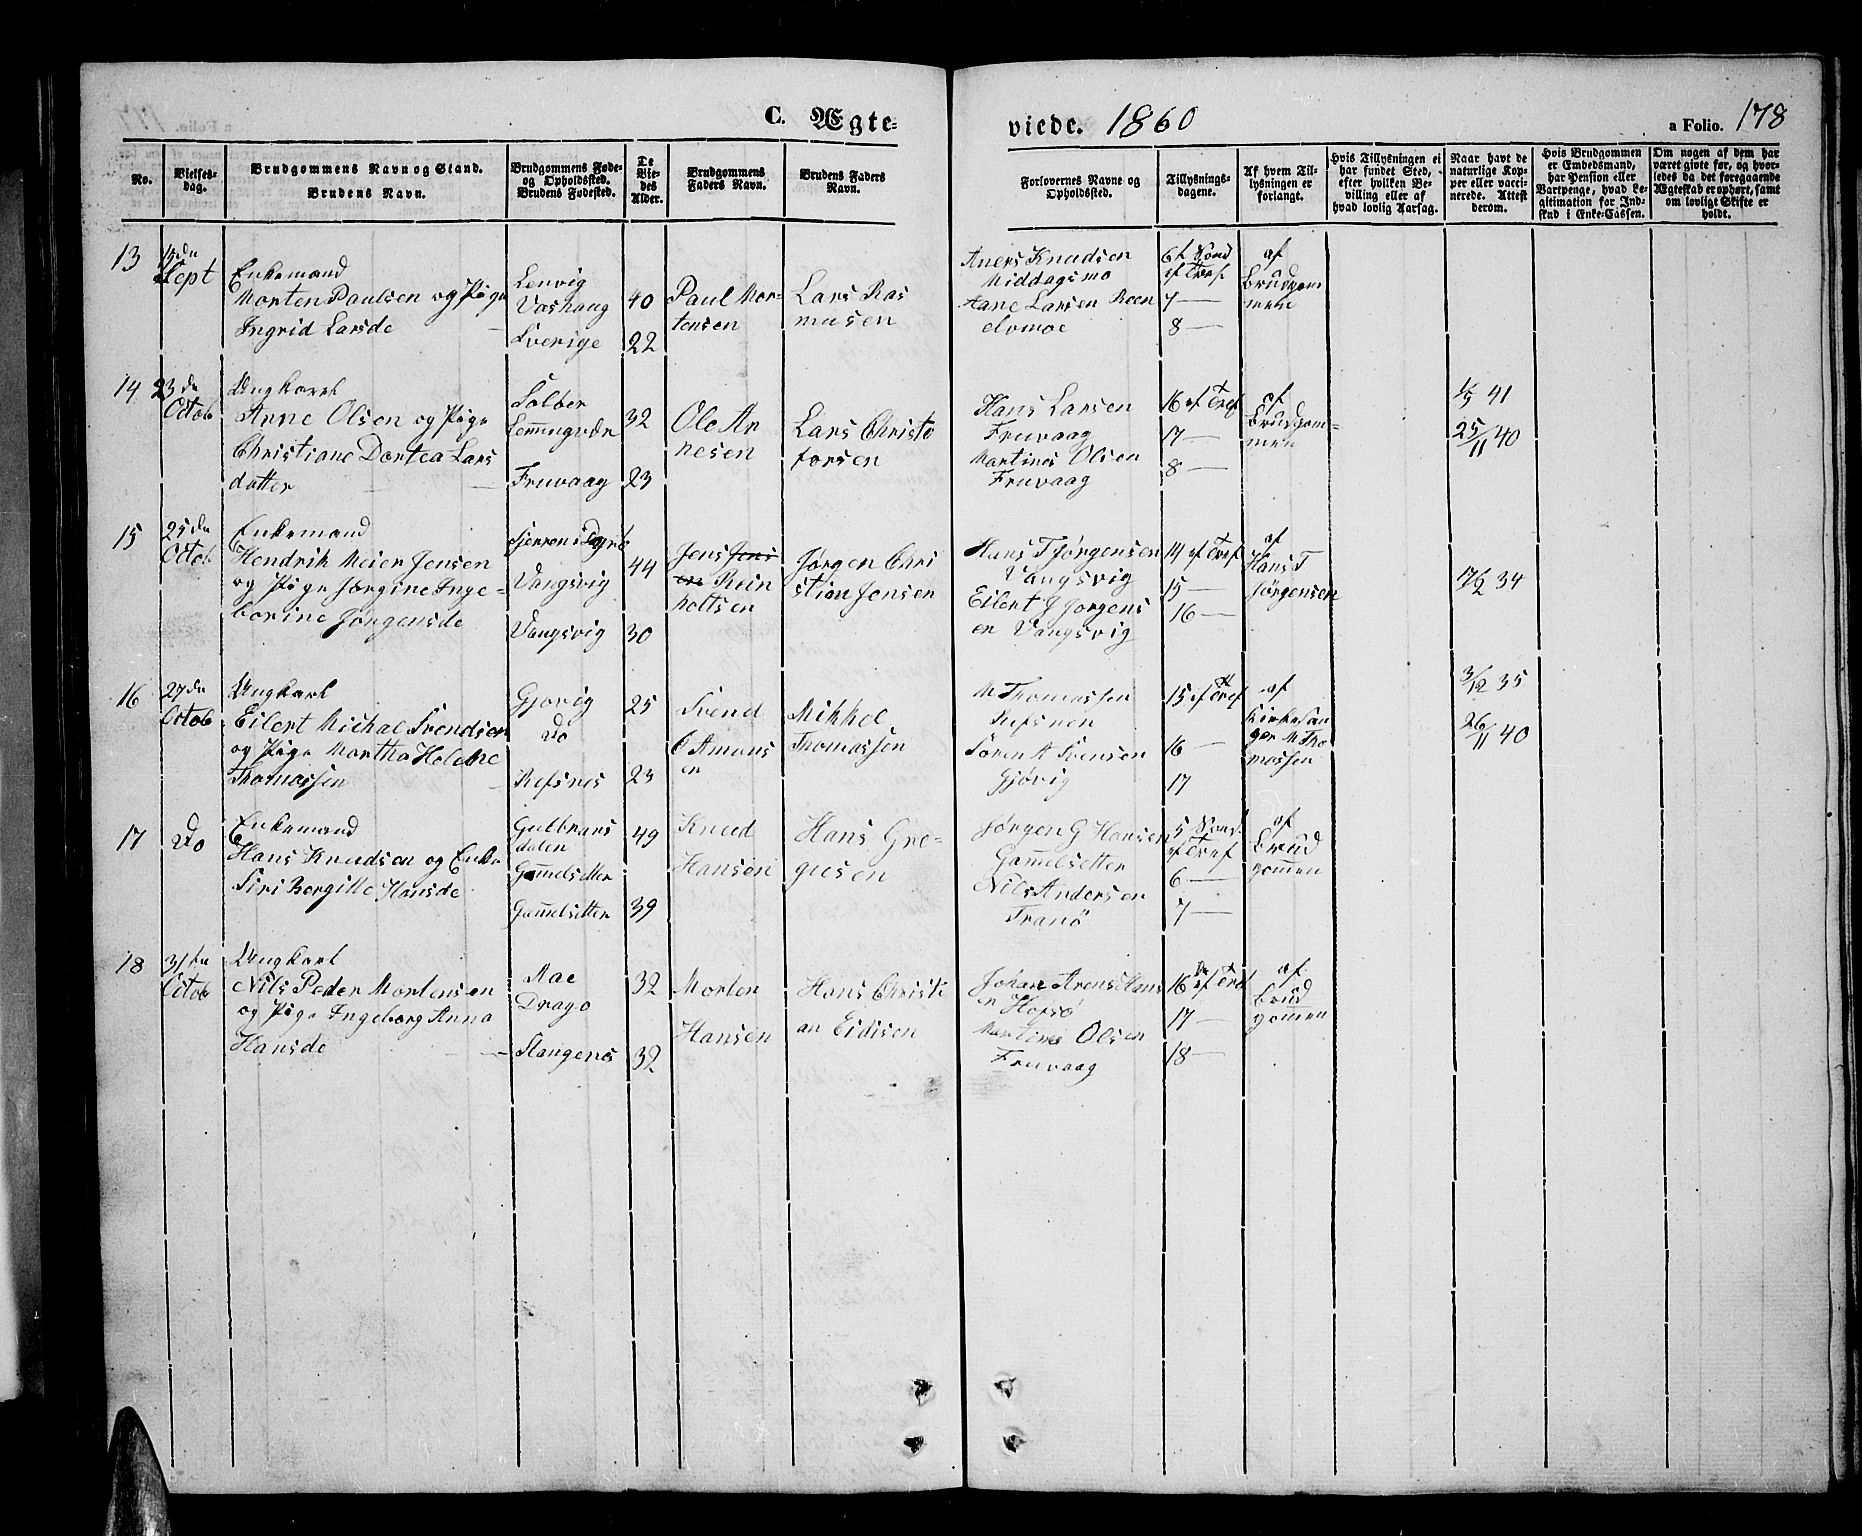 C. Ægte-
viede. 1860
a Folio. 178
No.
Vielses-
dag.
Brudgommens Navn og Stand.
Brudens Navn.
Brudgommens Føde-
og Opholdssted.
Brudens Fødested.
De
Vie-
des
Alder.
Brudgommens
Faders Navn.
Brudens Faders
Navn.
Forlovernes Navne og
Opholdssted.
Tillysnings-
dagene.
Af hvem Til-
lysningen er
forlangt.
Hvis Tillysningen ei
har fundet Sted,
efter hvilken Be-
villing eller af
hvad lovlig Aarsag.
Naar havt de
naturlige Kop-
per eller vacci-
nerede. Attest
derom.
Hvis Brudgommen
er Embedsmand,
har Pension eller
Vartpenge, hvad Le-
gitimation for Ind-
skud i Enke-Cassen.
Om nogen af dem har
været givte før, og hvor-
ledes da det foregaaende
Ægteskab er ophørt, samt
om lovligt Skifte er
holdt.
13
Sept
Enkemand
Morten Paulsen og Pige
Ingrid Larsde
Lenvig
Vashaug
Sverige
40
22
Paul Mor-
tensen
Lars Ras
musen
Aners Knudsen
Middagsmo
Aane Larsen Roen
elvmoe
6t Sønd
ef Tref
7 —
8 —
af
Brudgom
men
14
23de
Octob
Ungkarl
Arne Olsen og Pige
Christiane Dortea Lars
datter
Solber
Lemmingvær
Fruvaag
32
23
Ole Ar
nesen
Lars Christo
forsen
Hans Larsen
Fruvaag
Martines Olsen
Fruvaag
16 ef Tref
17 —
8 —
af
Brudgom=
men
1/5 41
25/11 40
15
25de
Octob
Enkemand
Hendrik Meier Jensen
og Pige Jørgine Inge-
borine Jørgensde
Vangsvig
Vangsvig
44
30
Jens Jens
en Rein
holtsen
Jørgen Chri
stian Jensen
Hans T Jørgensen
Vangsvig
Eilert J Jørgens
en Vangsvig
14 ef Tref
15 —
16 —
af
Hans T
Jørgensen
17/2 34
16
27de
Octob
Ungkarl
Eilert Michal Svendsen
og Pige Martha Helene
Thomassen
Gjøvig
Do
Refsnes
25
23
Svend
Amuns
en
Mikkel
Thomassen
M Thomassen
Refsnes
Søren A Svensen
Gjøvig
15 ef Tref
16 —
17
af
Kirkesan
ger M Tho
massen
3/12 35
26/11 40
17
Do
Enkemand
Hans Knudsen og Enke
Siri Bergitte Hansde
Gulbrans
dalen
Gammelsetter
Gammelsetter
49
39
Knud
Hansen
Hans Gre-
gusen
Jørgen G Hansen
Gammelsetter
Nils Andersen
Tranø
5 Sønd
ef Tref
6 —
7 —
af
Brud
gommen
18
31te
Octob
Ungkarl
Nils Peder Mortensen
og Pige Ingeborg Anna
Hansde
Aae
Drago
Stangenes
32
32
Morten
Hansen
Hans Christi
an Eidisen
Johan Arens Hans
en Hofsø
Martines Olsen
Fruvaag
16 ef Tref
17 —
18 —
af
Brud
gommen